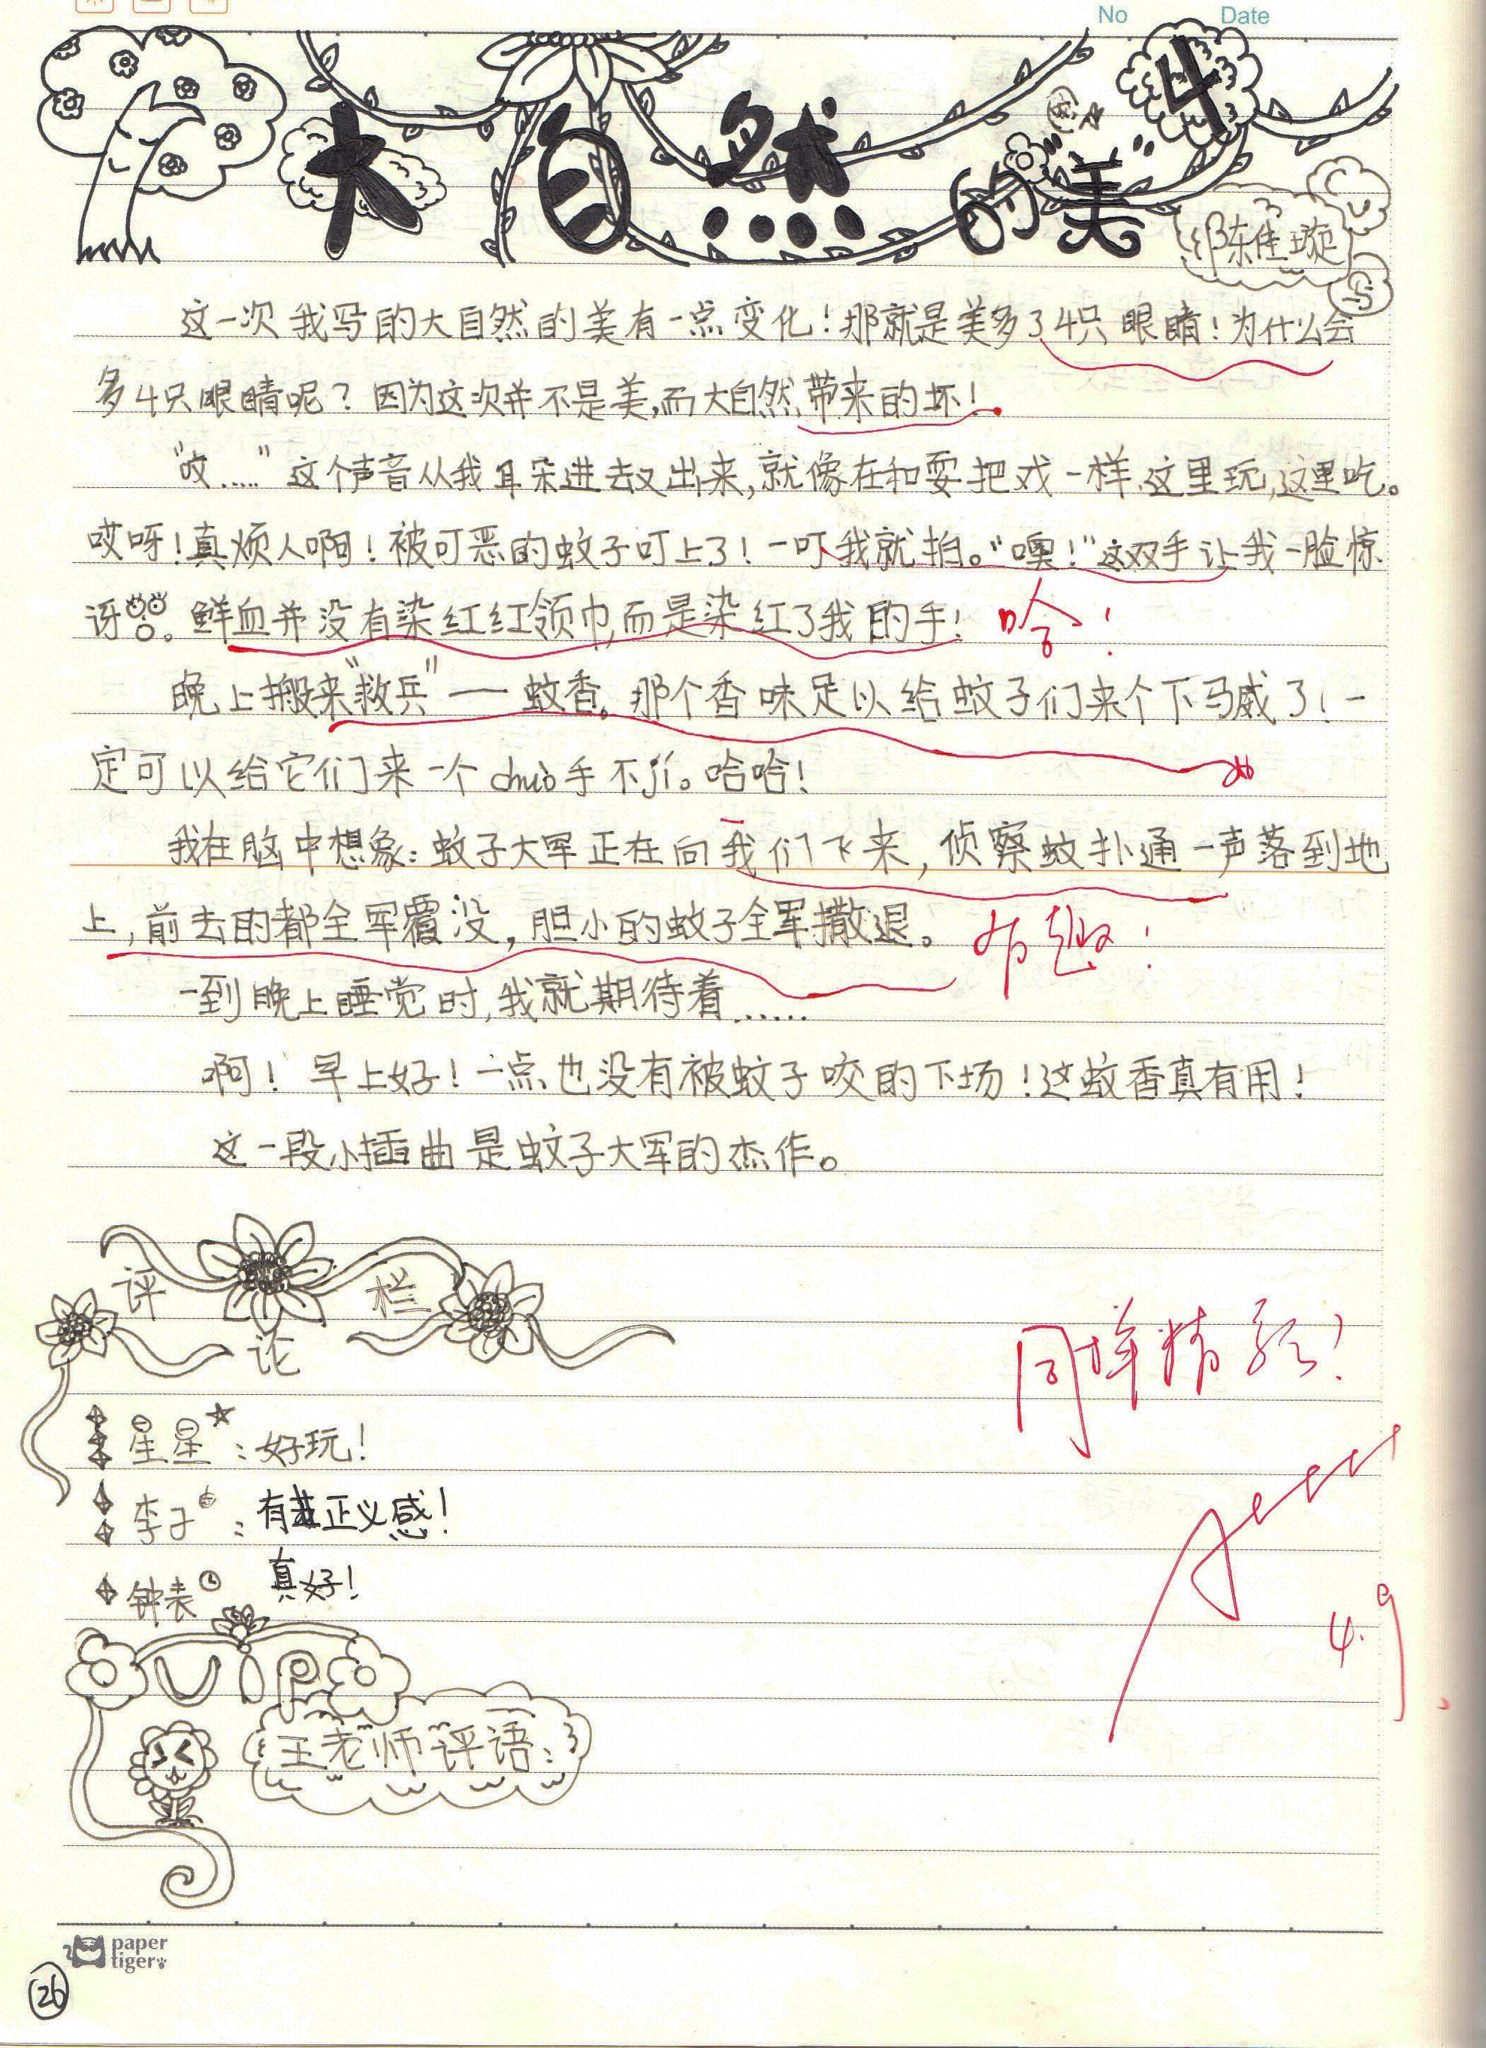 No Date
大自然的美 4
陈佳璇
这一次我写的大自然的美有一点变化！那就是美多了4只眼睛！为什么会
多4只眼睛呢？因为这次并不是美，而大自然带来的坏！
“哎……”这个声音从我耳朵进去又出来，就像在和耍把戏一样，这里玩，这里吃。
哎呀！真烦人啊！被可恶的蚊子叮上了！一叮，我就拍。“噢！”这双手让我一脸惊
讶。鲜血并没有染红红领巾，而是染红了我的手！ 哈！
晚上搬来“救兵”——蚊香。那个香味足以给蚊子们来个下马威了！一
定可以给它们来一个chuò手不jí。哈哈！
我在脑中想象：蚊子大军正在向我们飞来，侦察蚊扑通一声落到地
上，前去的都全军覆没，胆小的蚊子全军撒退。 有趣！
一到晚上睡觉时，我就期待着……
啊！早上好！一点也没有被蚊子咬的下场！这蚊香真有用！
这一段小插曲是蚊子大军的杰作。
评论栏
同样精彩！
星星：好玩！
李子：有正义感！
钟表 真好！
A++++
4.9
VIP
王老师评语：
paper
tiger
26